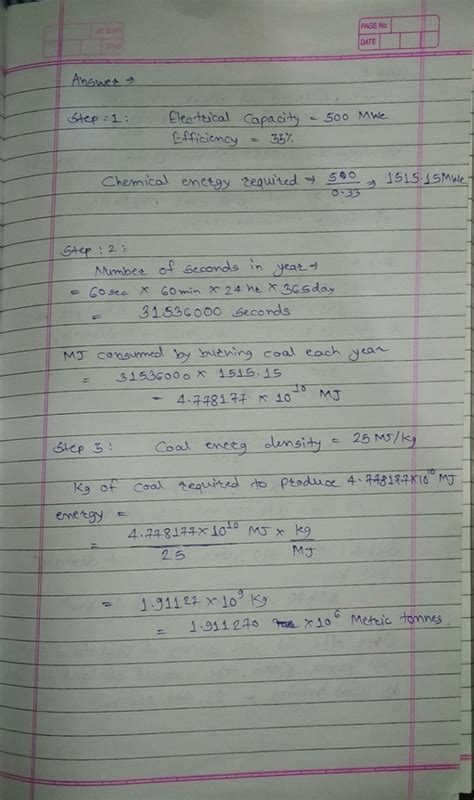 PAGE No.
DATE
Answer →
Step:1: Electrical Capacity = 500 MWe
Efficiency = 33%
Chemical energy required → 500/0.33 → 1515.15 MWe
Step:2:
Number of seconds in year →
= 60sec × 60min × 24hr × 365day
= 31536000 seconds
MJ consumed by burning coal each year
= 31536000 × 1515.15
= 4.778177 × 10^10 MJ
Step 3: Coal energ density = 25 MJ/kg
Kg of coal required to produce 4.778177×10^10 MJ
energy =
= 4.778177×10^10/25 MJ × kg/MJ
= 1.91127 × 10^9 kg
= 1.911270 × 10^6 Metric tonnes.